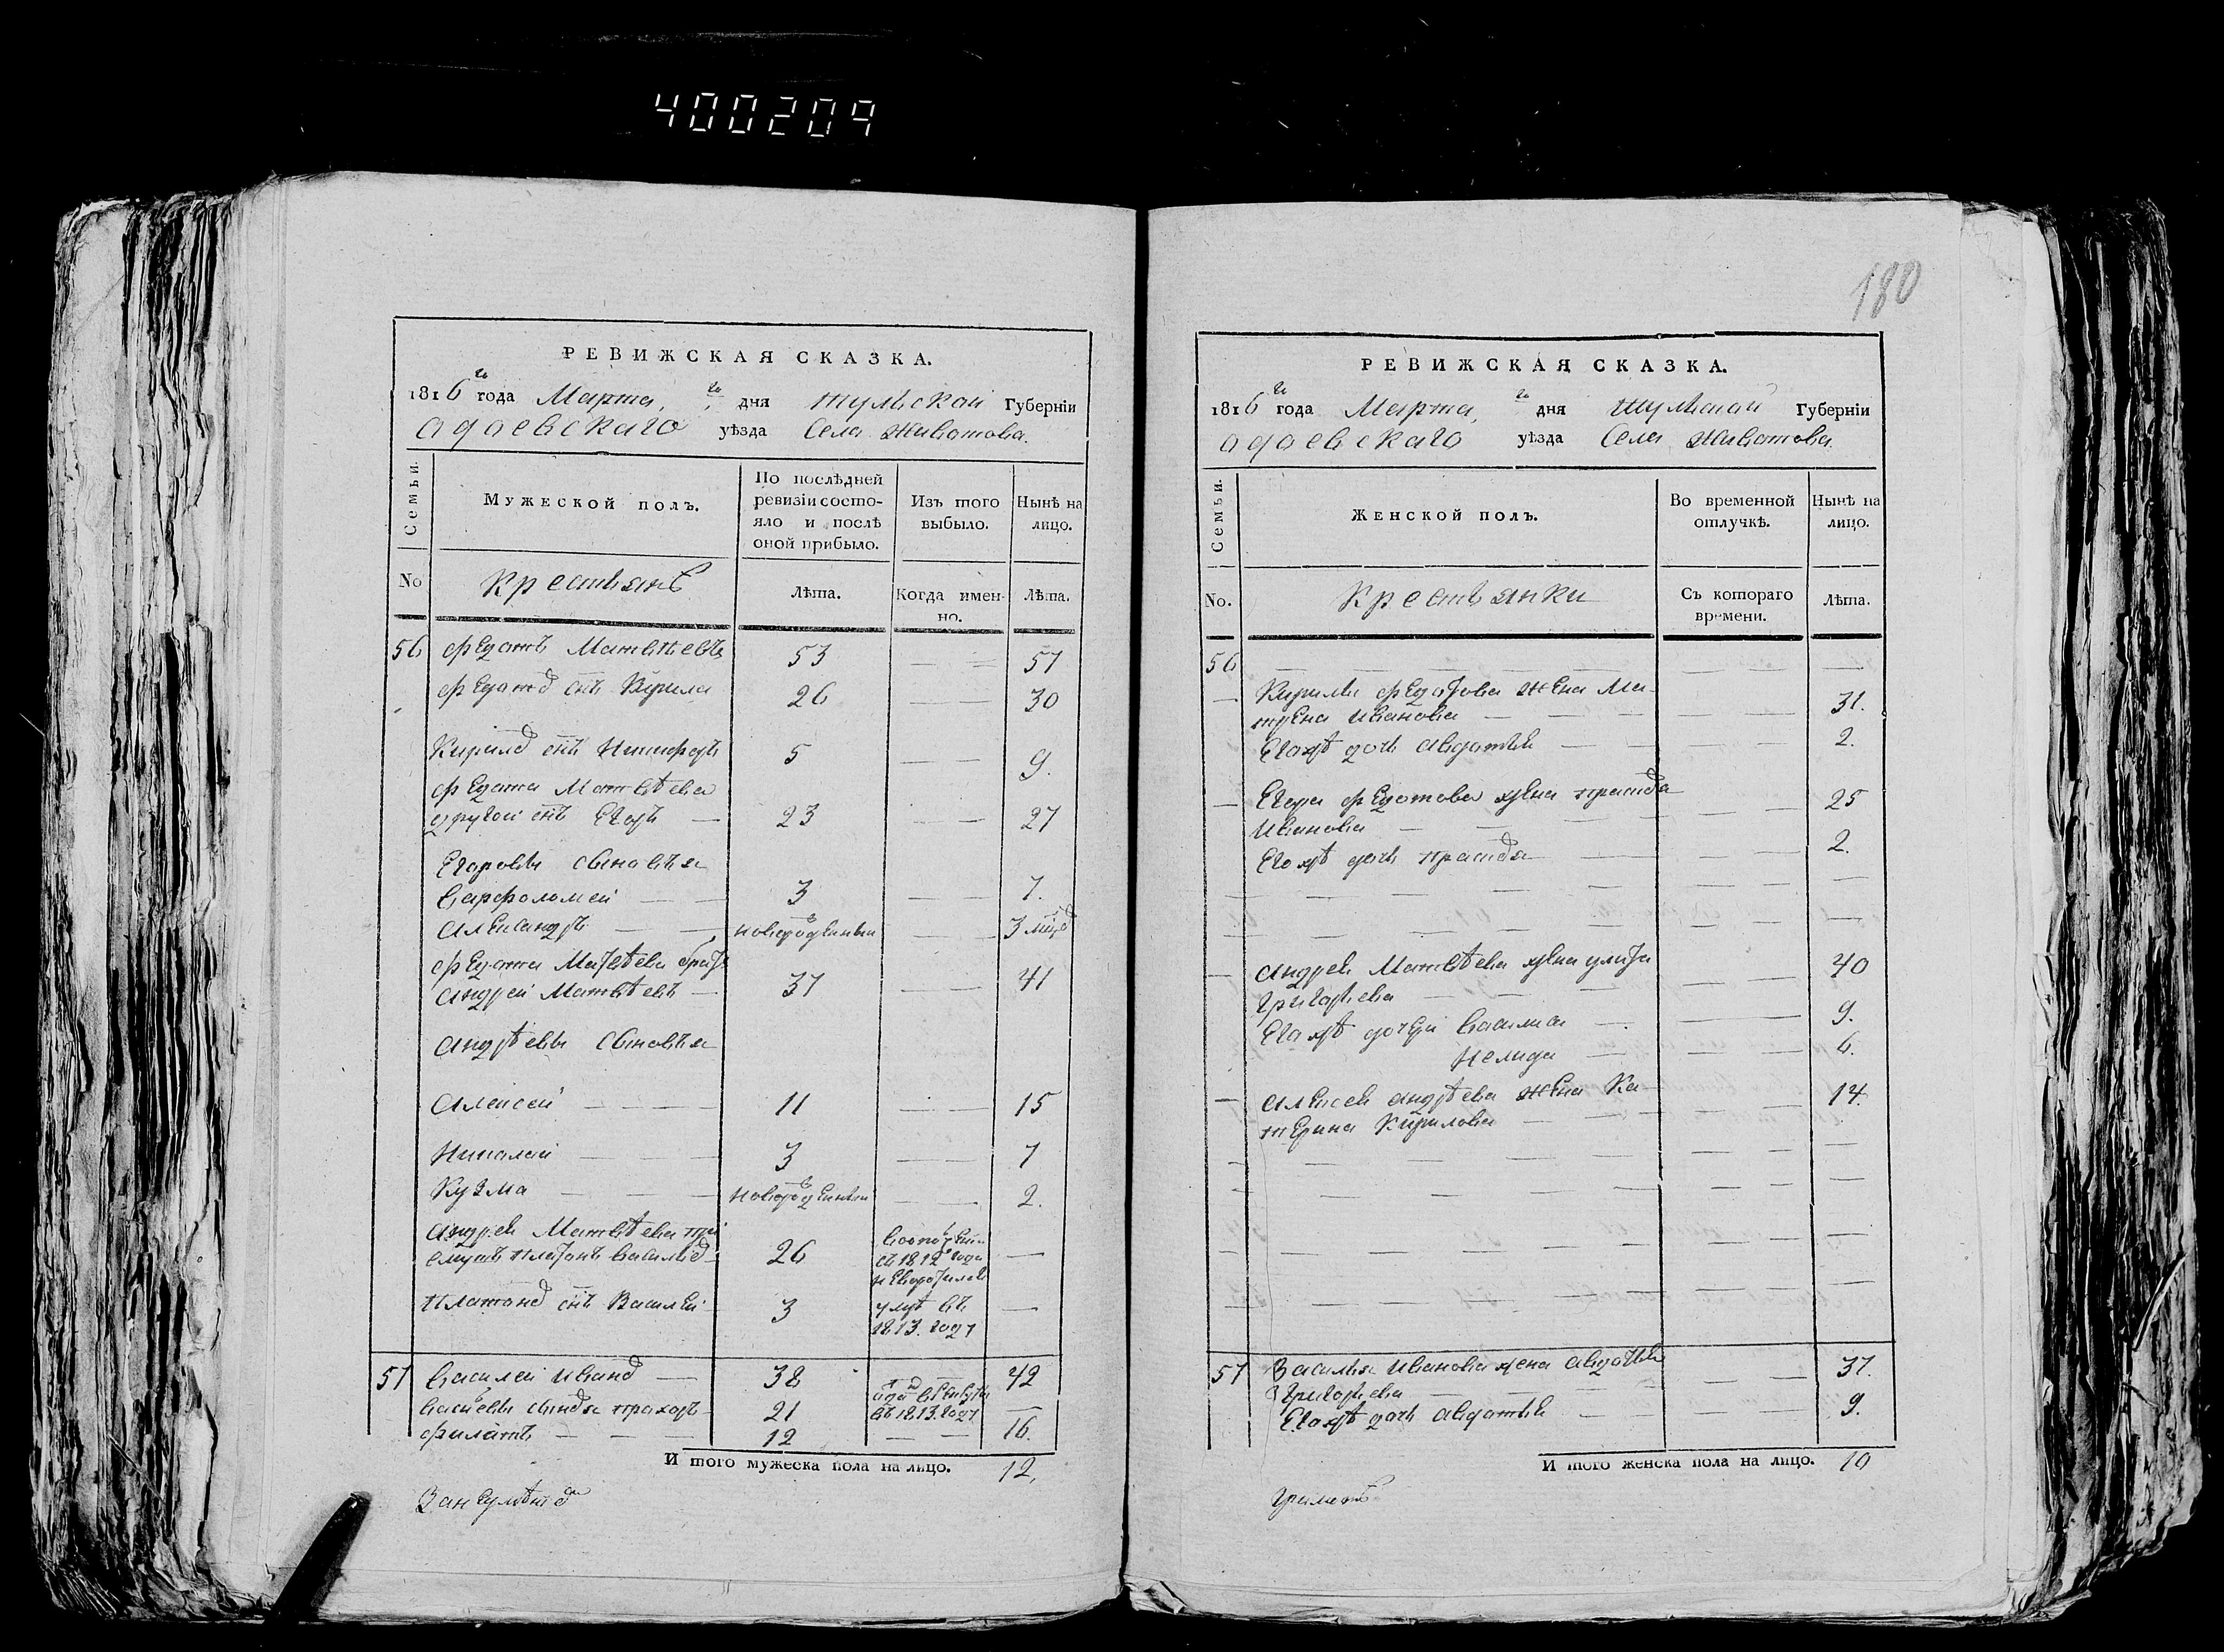 400209
180
РЕВИЖСКАЯ СКАЗКА.
1816го года Марта, го дня тульской Губерніи
одоевскаго уѣзда Села Животова.
Семьи.
Мужеской полъ.
По послѣдней ревизіи состояло и послѣ оной прибыло.
Изъ того выбыло.
Нынѣ на лицо.
No
Крестьянѣ
Лѣта.
Когда именно.
Лѣта.
56 Федотъ Матвѣевъ 53 — — 57
Федотов снъ Кирила 26 — — 30
Кирилов снъ Никифоръ 5 — — 9.
Федота Матвѣева
другой снъ Егоръ — 23 — — 27
Егоровы сыновья
Варфоломей — — 3 — — 7.
Александръ — — новорожденны — — 3 мцов
Федота Матвѣева братъ
Андрей Матвѣевъ — 37 — — 41
Андрѣевы сыновья
Алексей — — — 11 — — 15
Николай — — — 3 — — 7
Кузма — — — новорожденны — — 2.
Андрея Матвѣева прі
емышъ Платонъ Васильев 26
съ 1812го года —
Платонов снъ Василей 3 умре въ —
1813. году
57 Василей Иванов — 38 42
Васильевы сыновья Прохоръ 21 въ 1813. году —
Филатъ — — — 12 — — 16.
И того мужеска пола на лицо. 12.
РЕВИЖСКАЯ СКАЗКА.
1816го года Марта, го дня тульской Губерніи
одоевскаго уѣзда Села Животова.
Семьи.
Женской полъ.
Во временной отлучкѣ.
Нынѣ на лицо.
No.
Крестьянки
Съ котораго времени.
Лѣта.
56 — — — — — —
Кирилы Федотова жена Ма-
трена Иванова — — — — — 31.
Егожѣ дочь Авдотья — — — — 2.
Егора Федотова жена Прасков
Иванова — — — — 25
Егожѣ дочь Прасковья — — — 2.
Андрея Матвѣева жена Улита
Григорьева — — — — 40
Егожѣ дочери Василиса — — — 9.
6.
Алексея Андрѣева жена Ка-
терина Кирилова — — — 14.
57 Василья Иванова жена Авдотья
Григорьева — — — — 37.
Егожѣ дочь Авдотья — — — — 9.
И того женска пола на лицо. 10